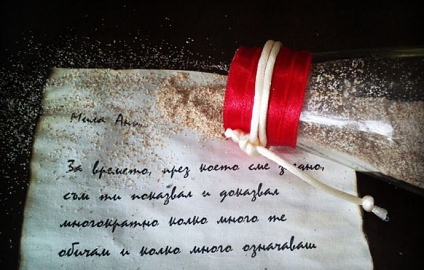 Мила Ани,
За времето, през което сме заедно,
съм ти показвал и доказвал
многократно колко много те
обичам и колко много означаваш